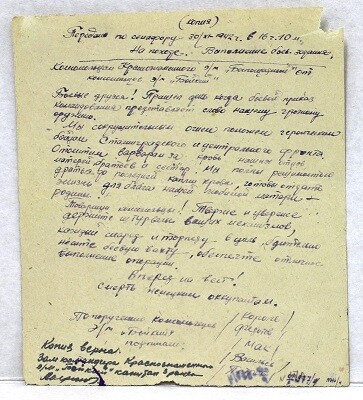 (копия)
Передано по семафору 30/XI 1942 г. в 16 г. 10 м.
На походе. Выполняите боев. задание.
Комсомольцам Краснознаменного э/м "Беспощадный" от
комсомольцев э/м "Бойкий"
Боевые друзья! Пришел день когда боевой приказ
командования представляет слово нашему грозному
оружию.
Мы сокрушительным огнем поможем героическим
бойцам Сталинградского и центрального фронта.
Отомстим варварам за кровь наших отцов
матерей братьев и сестер. Мы полны решимости
драться до последней капли крови готовы отдать
жизнь для блага нашей любимой матери –
родины.
Товарищи комсомольцы! Твёрже и уверенее
держите штурвалы ваших механизмов,
каждый снаряд и торпеду в цель бдительно
несите боевую вахту, обеспечьте отличное
выполнение операции.
Вперед на вест!
Смерть немецким оккупантам.
По поручению комсомольцев
э/м "Бойкий"
подписали:
Копия верна:
Зам командира Краснознаменного
э/м "Бойкий" капитан 3 ранга